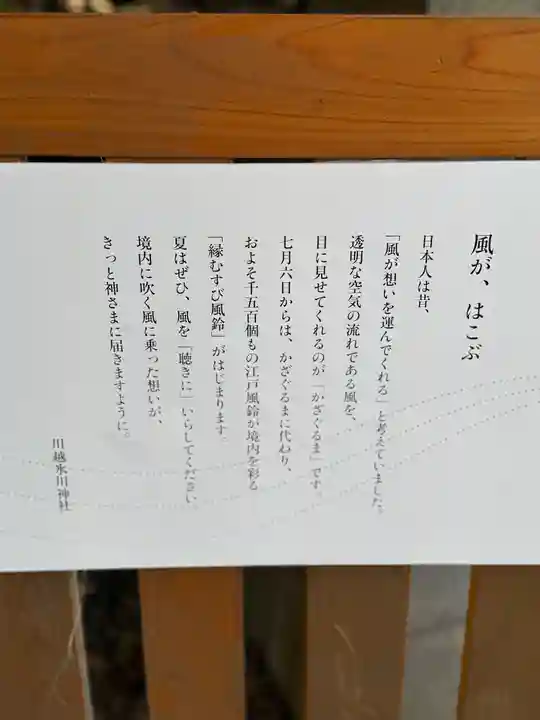 風が、はこぶ
日本人は昔、
「風が想いを運んでくれる」と考えていました。
透明な空気の流れである風を、
目に見せてくれるのが「かざぐるま」です。
七月六日からは、かざぐるまに代わり、
およそ千五百個もの江戸風鈴が境内を彩る
「縁むすび風鈴」がはじまります。
夏はぜひ、風を「聴きに」いらしてください。
境内に吹く風に乗った想いが、
きっと神さまに届きますように。
川越氷川神社